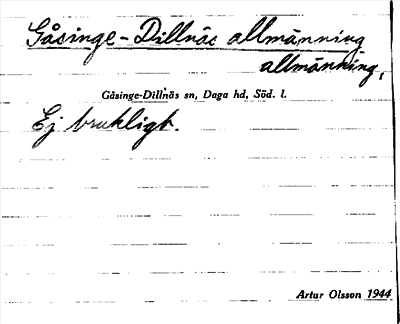 Gåsinge-Dillnäs allmänning
allmänning,
Gåsinge-Dillnäs sn, Daga hd, Söd. l.
Ej brukligt.
Artur Olsson 1944